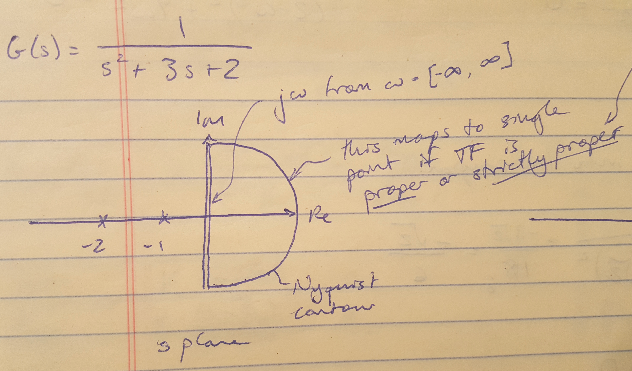 G(s) = 1 / s² + 3s + 2
jω from ω = [-∞, ∞]
Im
this maps to single
point if TF is
proper or strictly proper
Re
-2 -1
Nyquist
contour
s plane